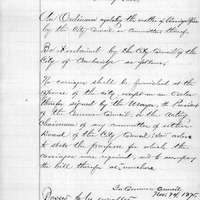 An Ordinance regulating the matter of Carriage Hire
by the City Council or Committees thereof.
Be it ordained by the City Council of the
City of Cambridge as follows,
No carriages shall be furnished at the
expense of the City except on an order
therefor signed by the Mayor, the President
of the Common Council or the acting
Chairman of any committee of either
Board of the City Council said orders
to state the purpose for which the
carriages were required, and to accompany
the bill therefor as vouchers
In Common Council
Nov. 24, 1875.
Passed to be enrolled